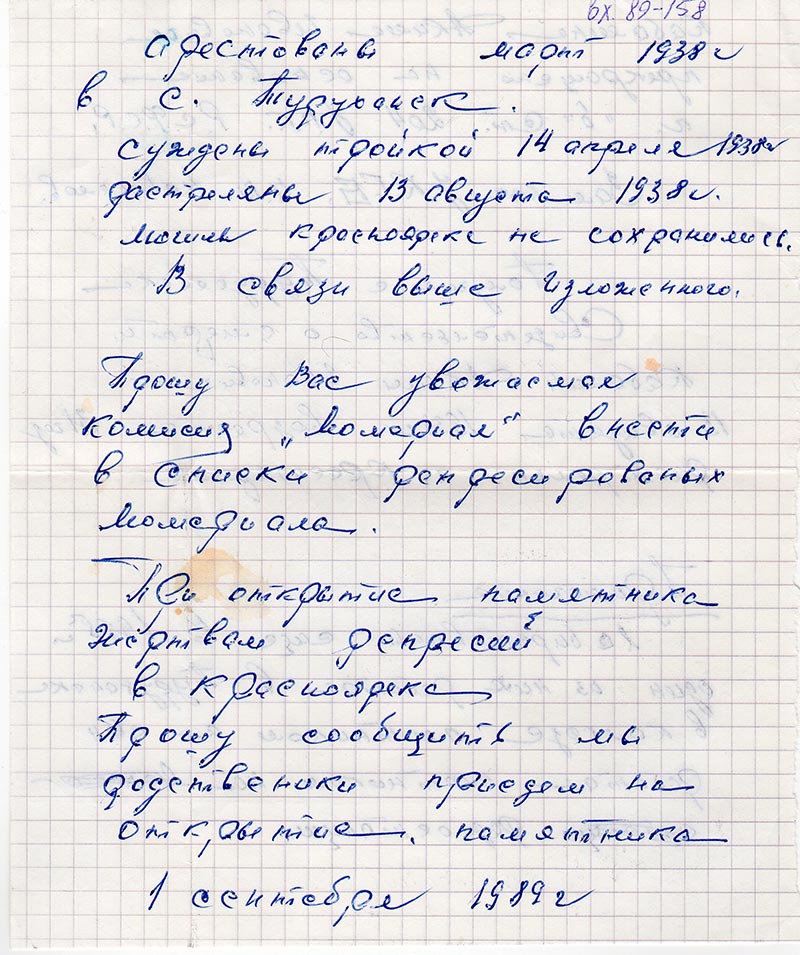 вх. 89-158
арестованы март 1938 г
в с. Туруханск.
суждены тройкой 14 апреля 1938г
расстреляны 13 августа 1938 г.
могилы Красноярске не сохранились.
В связи выше изложенного.
Прошу Вас уважаемая
комисия „Момериал" внести
в списки репресированых
момериала.
При открытие памятника
жертвам репрессий
в Красноярске
Прошу сообщить мы
родственики приедем на
открытие. памятника
1 сентября 1989 г